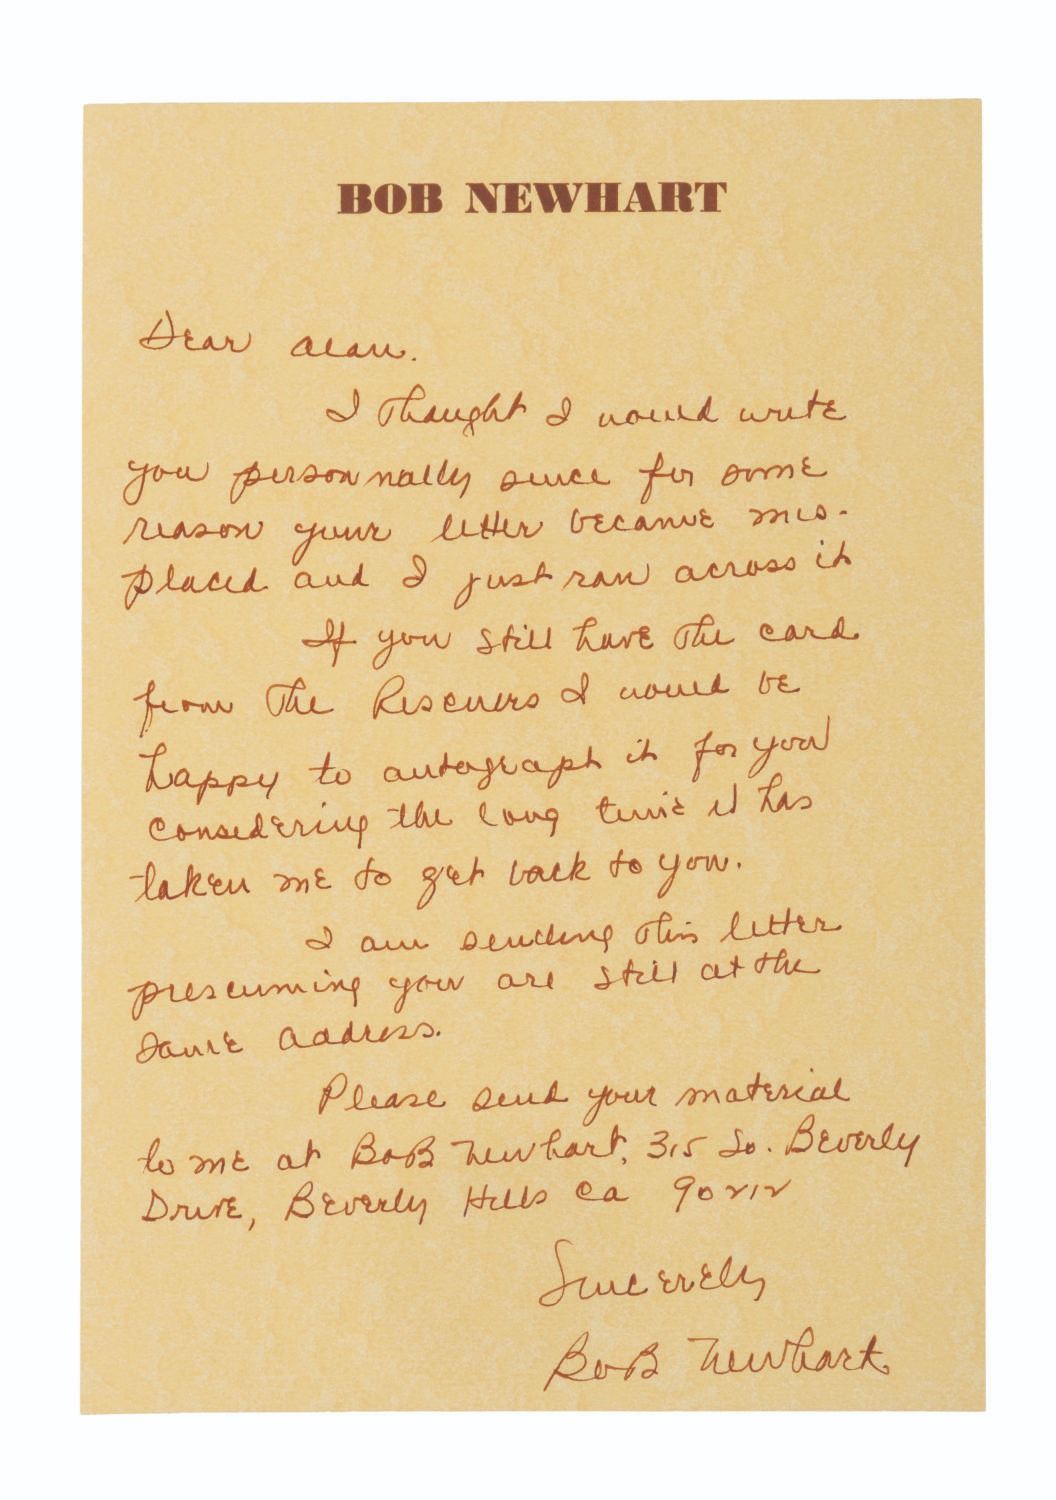 BOB NEWHART
Dear Alan.
I thought I would write
you personnally since for some
reason your letter became mis-
placed and I just ran across it
If you still have the card
from The Rescuers I would be
happy to autograph it for you
considering the long time it has
taken me to get back to you.
I am sending this letter
prescuming you are still at the
same address.
Please send your material
to me at Bob Newhart, 315 So. Beverly
Drive, Beverly Hills Ca 90212
Sincerely
Bob Newhart